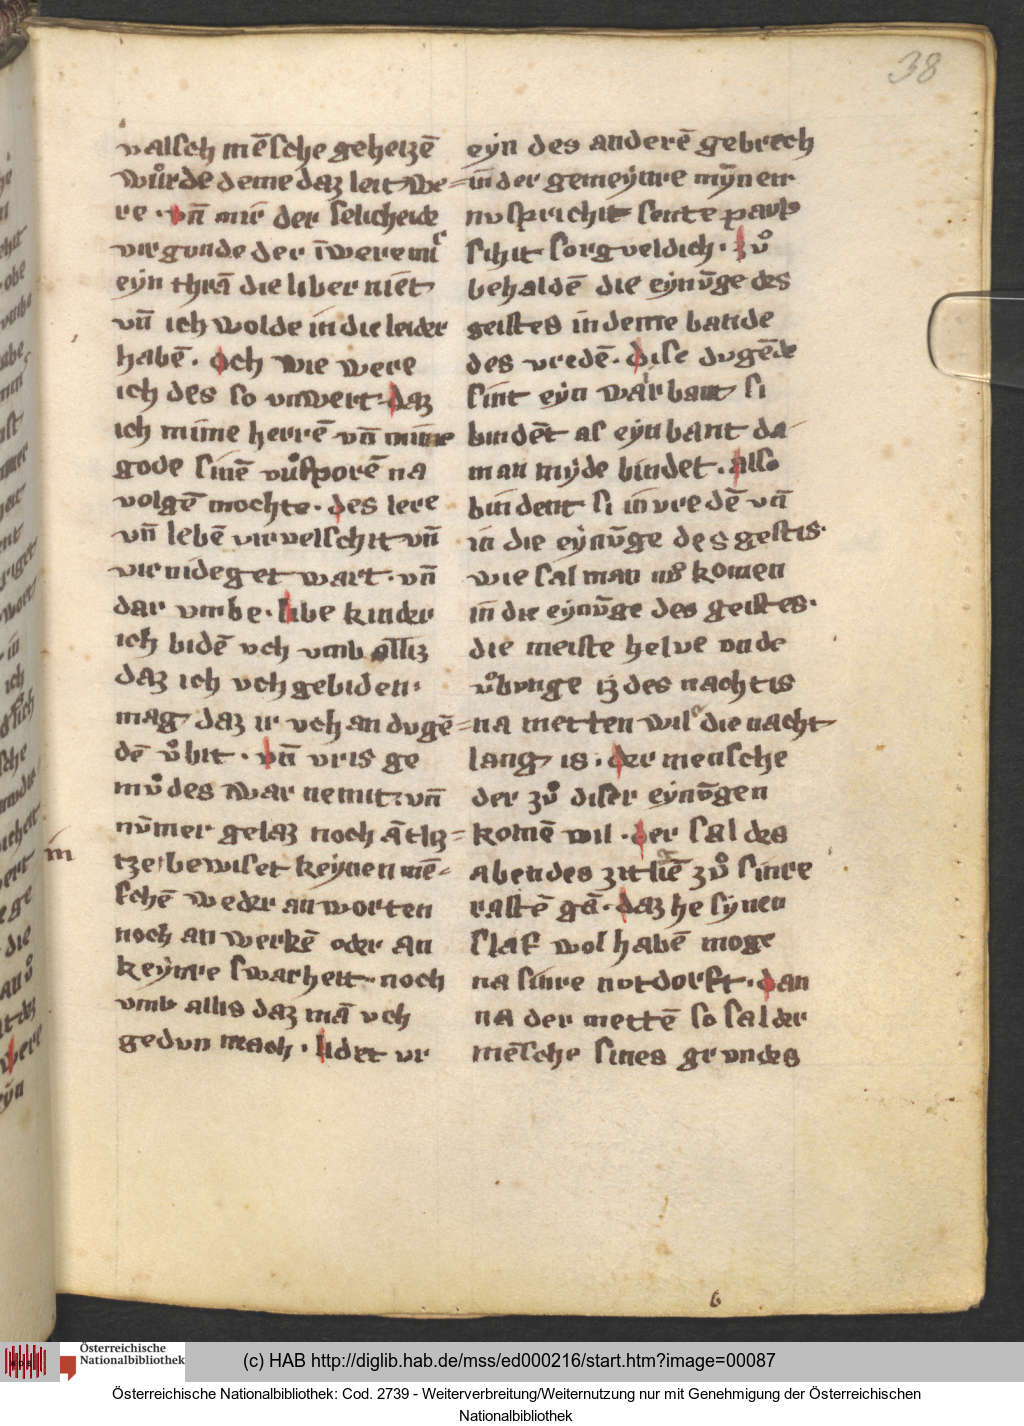 38
valsch mēsche geheizē
wuͦrde deme daz leit we=
re · vn̄ mir der selicheide
virgunde der ī were mīr
eẏn thrā die liber niēt
vn̄ ich wolde in die leider
habē . och wie were
ich des so vnwert . daz
ich mime herrē vn̄ mime
gode sinē vuͦsporē na
volgē mochte . des lere
vn̄ lebē virvelschit vn̄
vir nideget wart . vn̄
dar vmbe . libe kinder
ich bidē vch vmb alliz
daz ich vch gebiden .
mag daz ir vch an dvgē=
dē vͦbit . vn̄ vris ge
mvͦdes war nemit . vn̄
nūmer gelaz noch ātliz=
tze bewiset keẏnen mē=
schē weder an worten
noch an werkē oder an
keẏnre swarheit noch
vmb allis daz mā vch
gedvn mach . lidet vr
eẏn des anderē gebrech
in der gemeẏnre mẏnen
nv sprichit sente pauls
sihit sorgveldich . zvͦ
behaldē die eẏnv̄ge des
geistes in deme bande
des vredē . dise dvgēde
sint eẏn war bant si
bindēt as eẏn bant da
man mẏde bindet . also
bindent si in vredē vn̄
in die eẏnv̄ge des gestis .
wie sal man ns komen
in die eẏnv̄ge des geistes .
die meiste helve vnde
vͦbvnge iz des nachtis
na metten wil die nacht
lang is . der mensche
der zvͦ diser eẏnv̄gen
komē wil . der sal des
abendes zitliē zvͦ sinre
rastē gā . daz he sẏnen
slaf wol habē moge
na sinre notdorft . dan
na der mettē so sal der
mēsche sines grvndes
in
6
Österreichische
Nationalbibliothek
(c) HAB http://diglib.hab.de/mss/ed000216/start.htm?image=00087
Österreichische Nationalbibliothek: Cod. 2739 - Weiterverbreitung/Weiternutzung nur mit Genehmigung der Österreichischen
Nationalbibliothek